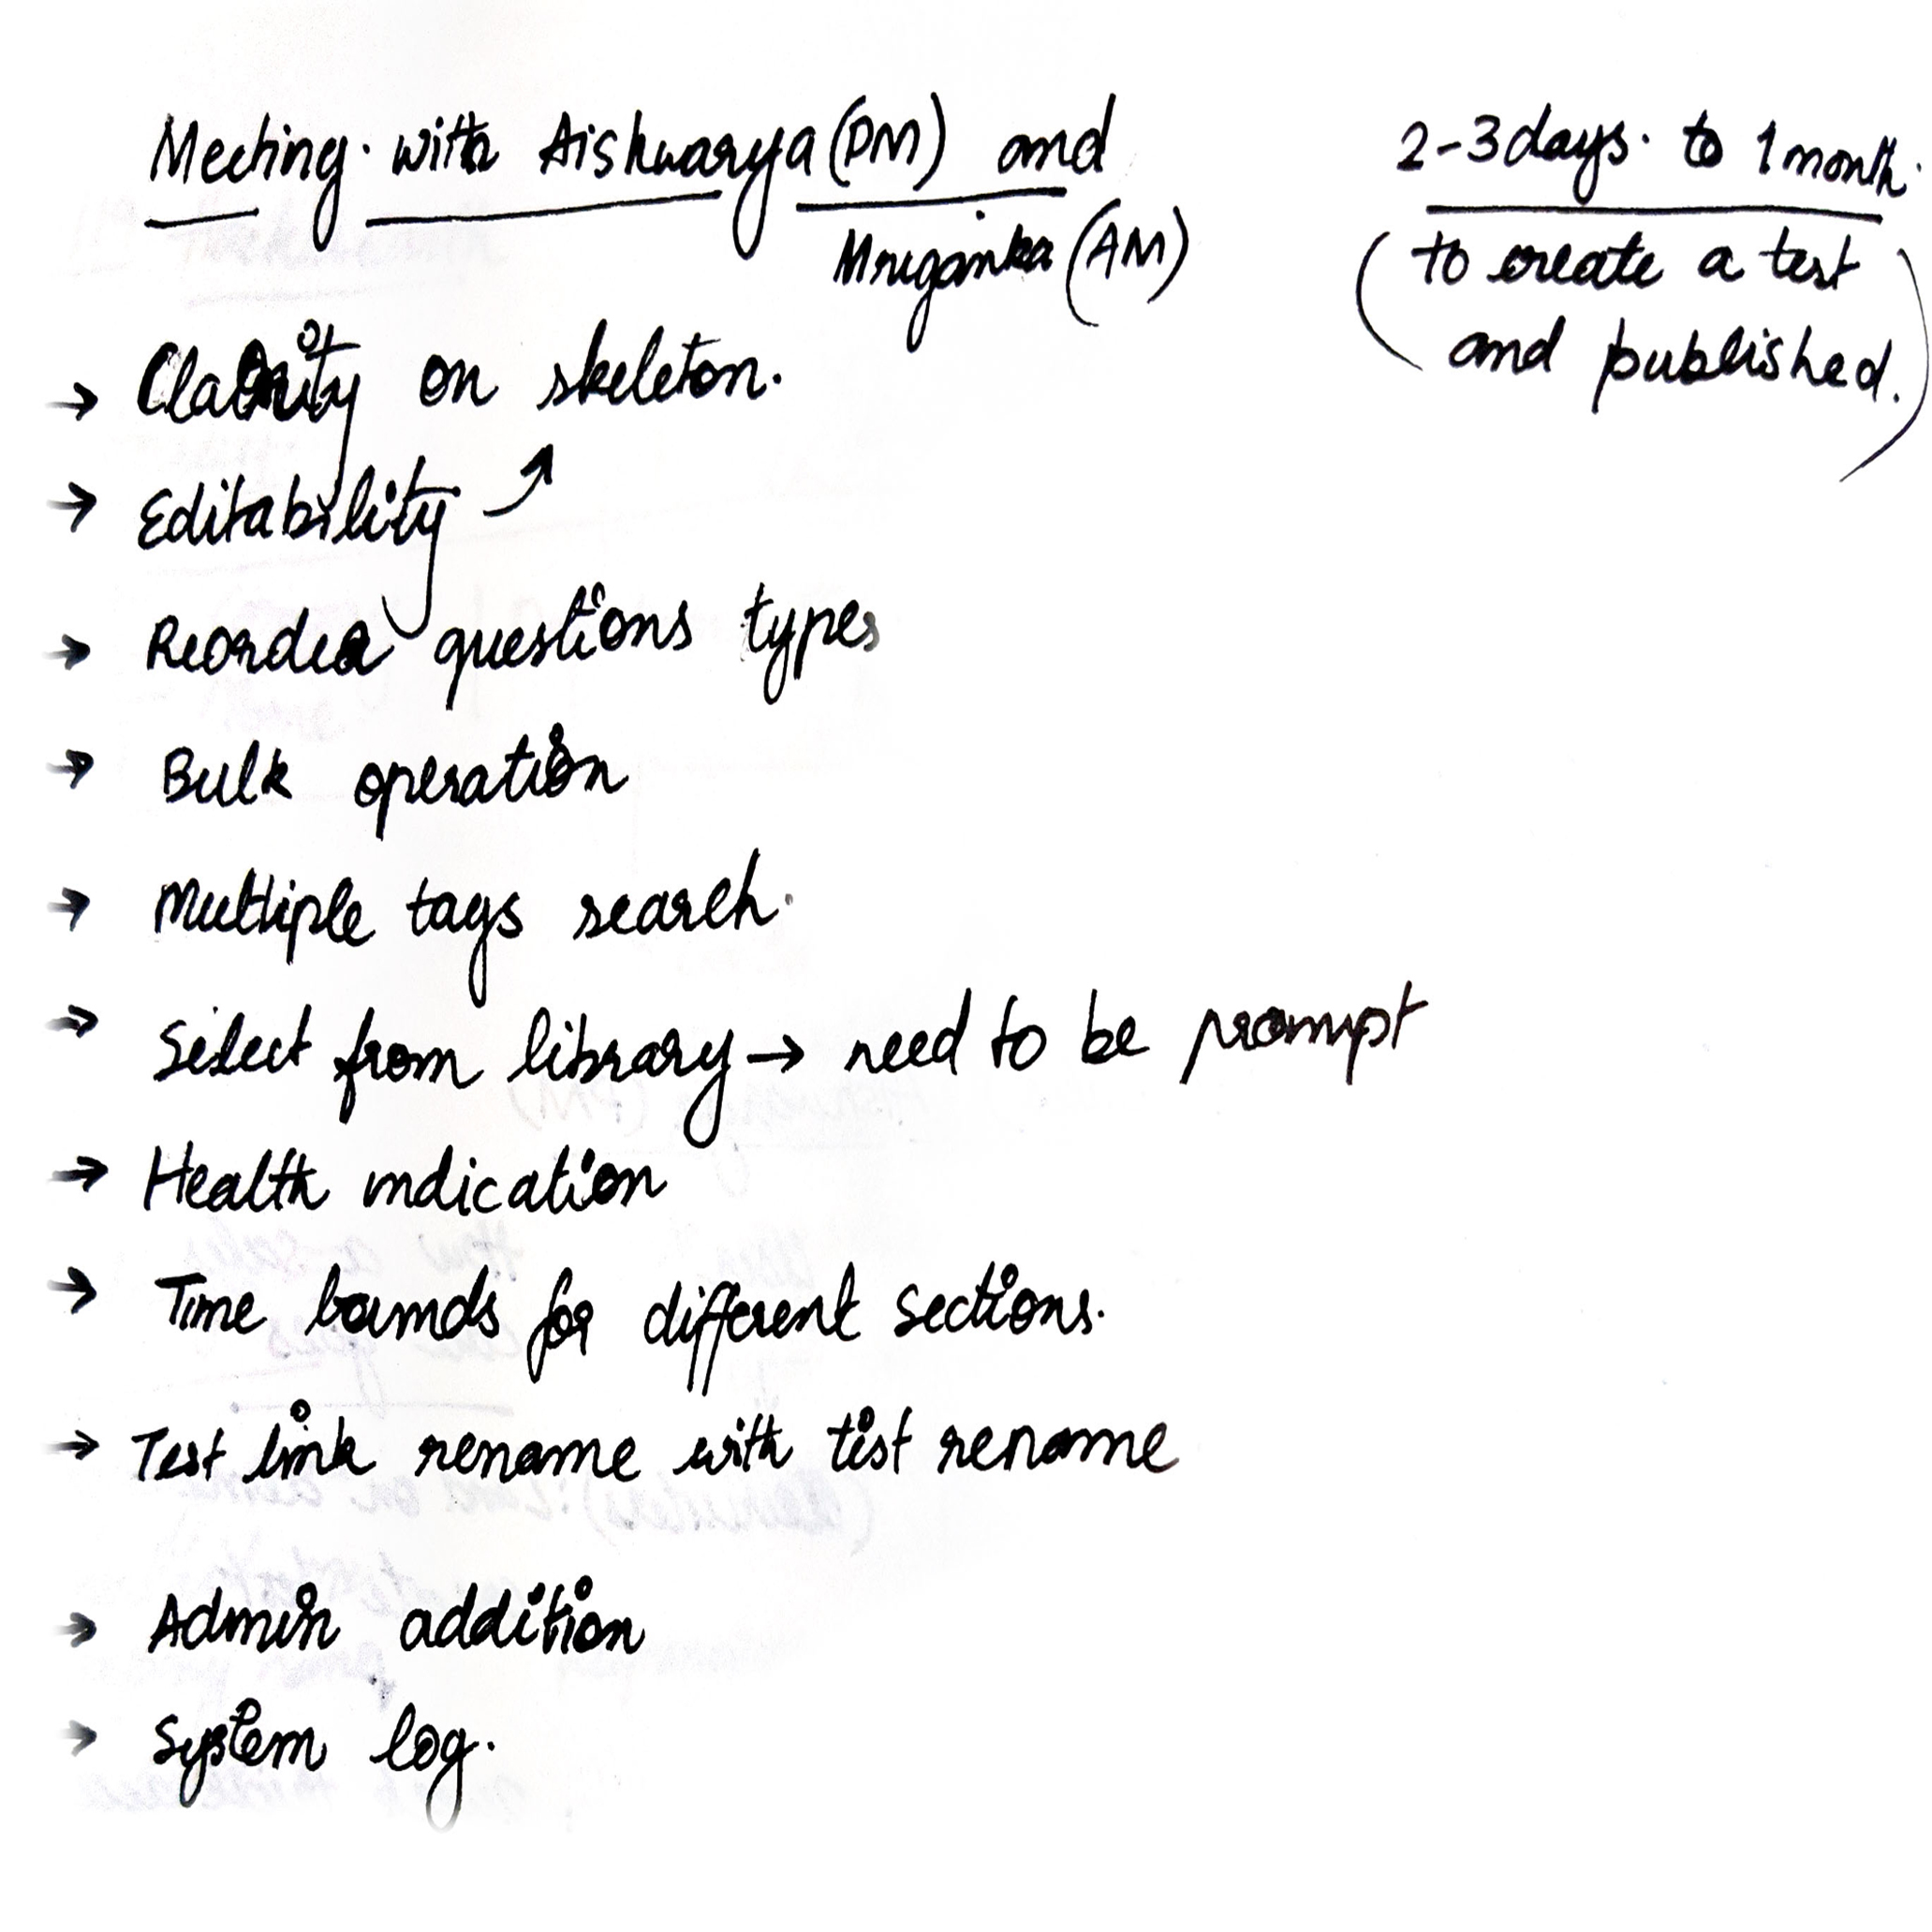 Meeting. with Aishwarya (PM) and
Mriganka (AM)
2-3 days. to 1 month.
( to create a test
and published. )
→ Clarity on skeleton.
→ Editability ↗
→ Reorder questions types
→ Bulk operation
→ Multiple tags search.
→ Select from library → need to be prompt
→ Health indication
→ Time bounds for different sections.
→ Test link rename with test rename
→ Admin addition
→ System log.